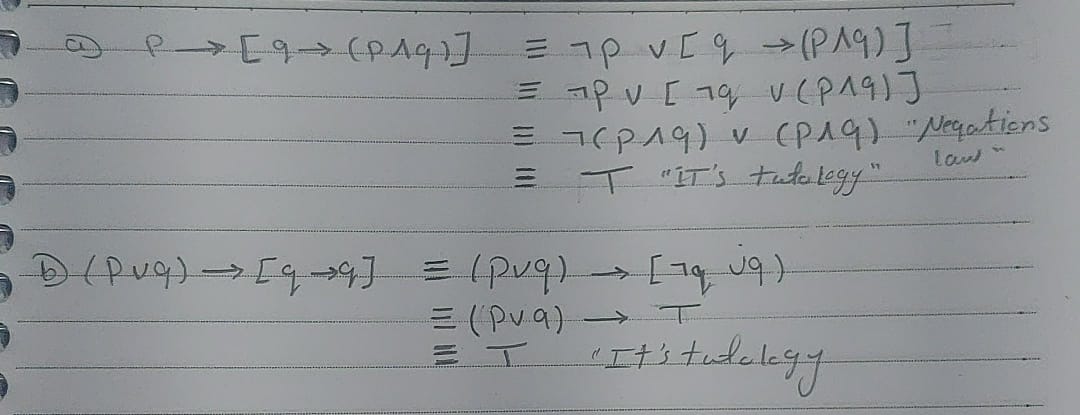 a) p → [q → (p∧q)] ≡ ¬p ∨ [q → (p∧q)]
≡ ¬p ∨ [¬q ∨ (p∧q)]
≡ ¬(p∧q) ∨ (p∧q) "Negations
law"
≡ T "IT's tutology"
b) (p∨q) → [q → q] ≡ (p∨q) → [¬q ∨ q)
≡ (p∨q) → T
≡ T "It's tutology